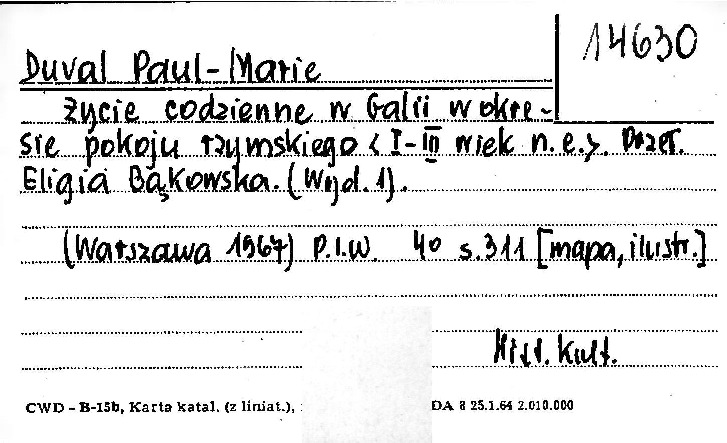 14630
Duval Paul-Marie
Życie codzienne w Galii w okre-
sie pokoju rzymskiego <I-III wiek n.e.>. Przeł.
Eligia Bąkowska. (Wyd. 1).
(Warszawa 1967) P.I.W. 4o s.311 [mapa, ilustr.]
Hist. Kult.
CWD - B-15b, Karta katal. (z liniat.), DA 8 25.1.64 2.010.000